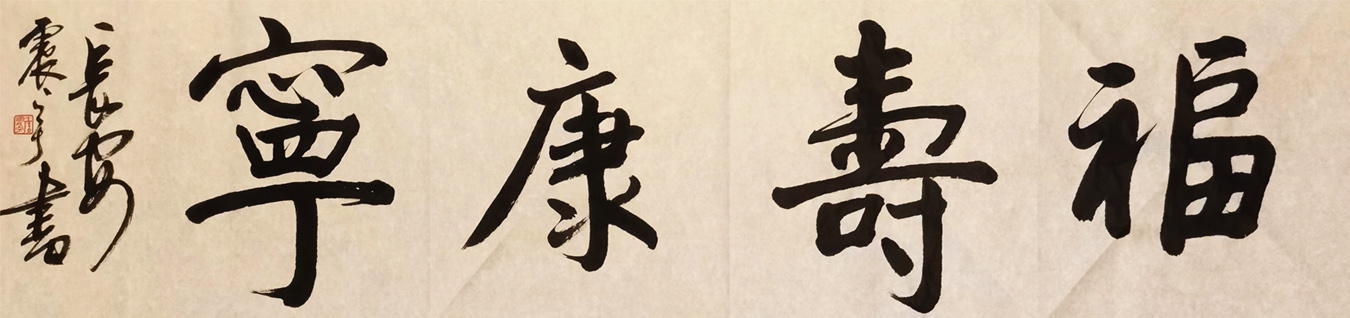 福壽康寧
長安
震宇書